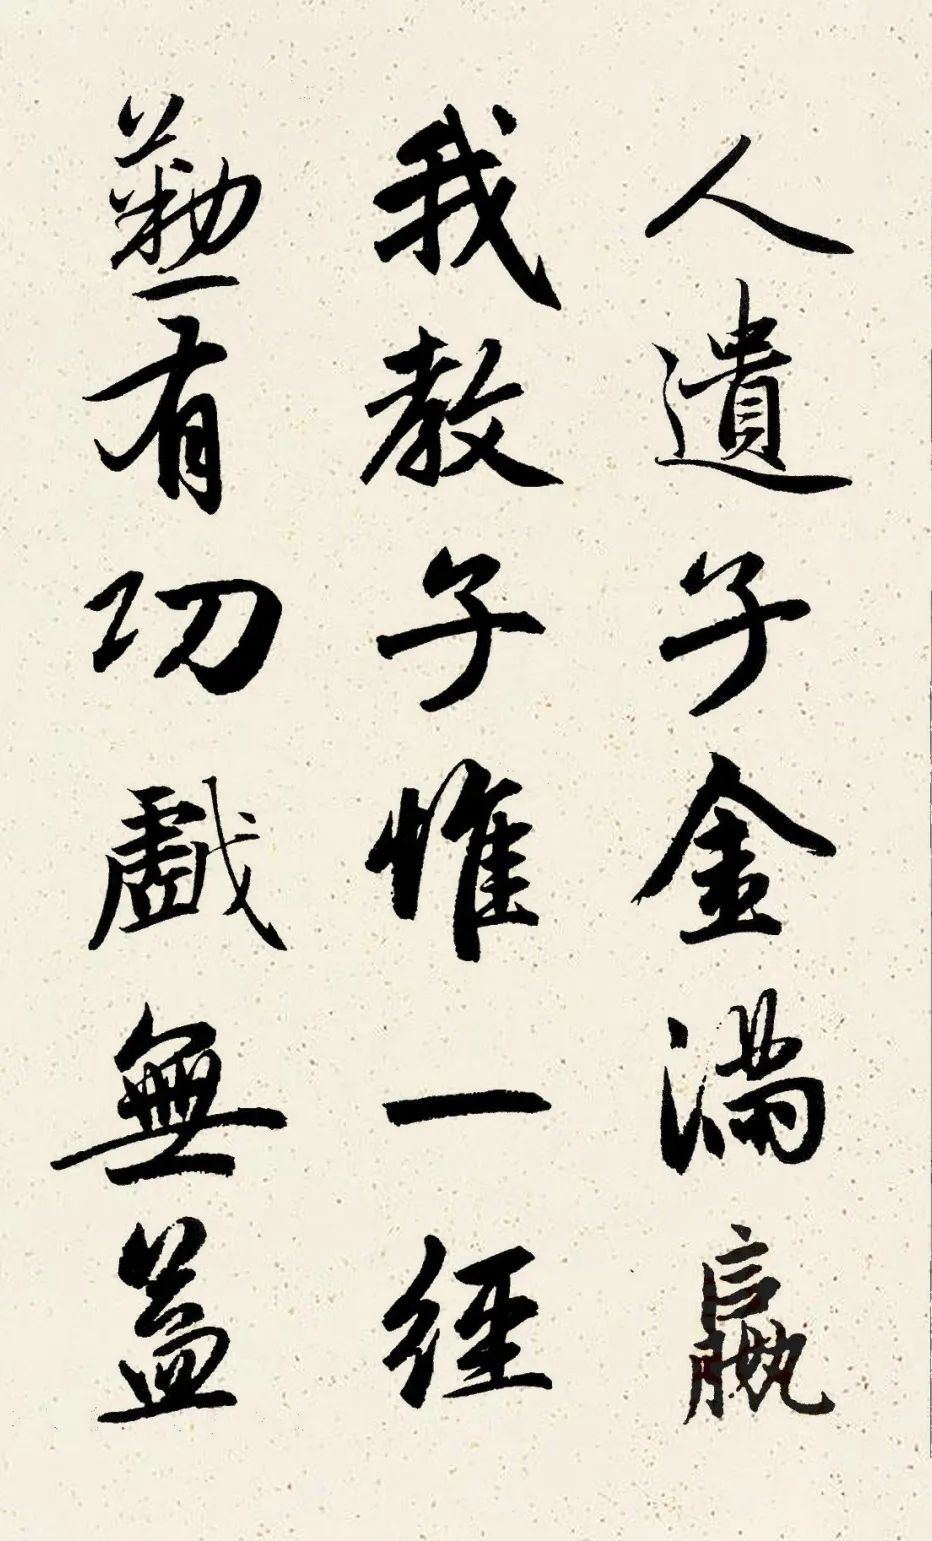 人遺子金滿嬴
我教子惟一經
勤有功戲無益